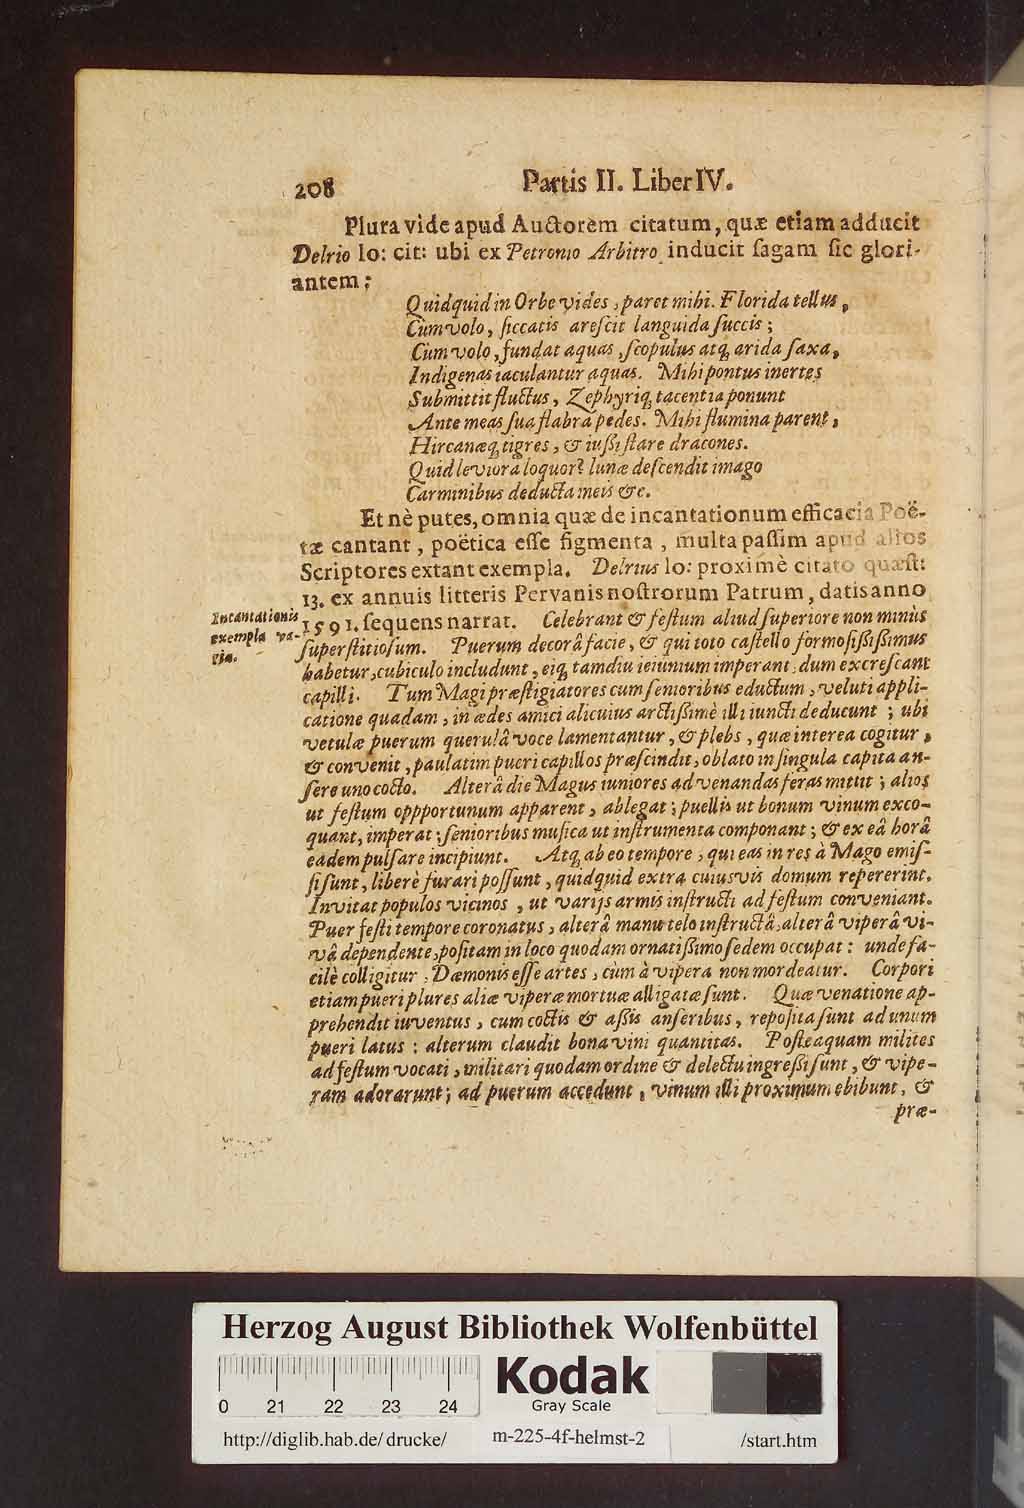 208
Partis II. Liber IV.
Plura vide apud Auctorem citatum, quæ etiam adducit
Delrio lo: cit: ubi ex Petronio Arbitro inducit ſagam ſic glori-
antem;
Quidquid in Orbe vides, paret mihi. Florida tellus,
Cùm volo, ſiccatis areſcit languida ſuccis;
Cùm volo, fundat aquas, ſcopulus atq; arida ſaxa,
Indigenas iaculantur aquas. Mihi pontus inertes
Submittit fluctus, Zephyriq; tacentia ponunt
Ante meas ſua flabra pedes. Mihi flumina parent,
Hircanæq; tigres, & iußi ſtare dracones.
Quid leviora loquor? lunæ deſcendit imago
Carminibus deducta meis &c.
Et nè putes, omnia quæ de incantationum efficacia Poë-
tæ cantant, poëtica eſſe figmenta, multa paſſim apud alios
Scriptores extant exempla. Delrius lo: proximè citato quæſt:
13. ex annuis litteris Pervanis noſtrorum Patrum, datis anno
Incantationis
exempla va-
ria.
1591. ſequens narrat. Celebrant & feſtum aliud ſuperiore non minùs
ſuperſtitioſum. Puerum decorâ facie, & qui toto caſtello formoſißißimus
habetur, cubiculo includunt, eiq; tamdiu ieiunium imperant, dum excreſcant
capilli. Tum Magi præſtigiatores cum ſenioribus eductum, veluti appli-
catione quadam, in ædes amici alicuius arctißimè illi iuncti deducunt; ubi
vetulæ puerum querulâ voce lamentantur, & plebs, quæ interea cogitur,
& convenit, paulatim pueri capillos præſcindit, oblato in ſingula capita an-
ſere uno cocto. Alterâ die Magus iuniores ad venandas feras mittit; alios
ut feſtum oppportunum apparent, ablegat; puellis ut bonum vinum exco-
quant, imperat; ſenioribus muſica ut inſtrumenta componant; & ex eâ horâ
eadem pulſare incipiunt. Atq; ab eo tempore, qui eas in res à Mago emiſ-
ſi ſunt, liberè furari poſſunt, quidquid extra cuiusvis domum repererint.
Invitat populos vicinos, ut varijs armis inſtructi ad feſtum conveniant.
Puer feſti tempore coronatus, alterâ manu telo inſtructâ, alterâ viperâ vi-
vâ dependente, poſitam in loco quodam ornatißimo ſedem occupat: unde fa-
cilè colligitur, Dæmonis eſſe artes, cùm à vipera non mordeatur. Corpori
etiam pueri plures aliæ viperæ mortuæ alligatæ ſunt. Quæ venatione ap-
prehendit iuventus, cum coctis & aßis anſeribus, repoſita ſunt ad unum
pueri latus: alterum claudit bona vini quantitas. Poſteaquam milites
ad feſtum vocati, militari quodam ordine & delectu ingreßi ſunt, & vipe-
ram adorarunt; ad puerum accedunt, vinum illi proximum ebibunt, &
præ-
Herzog August Bibliothek Wolfenbüttel
Kodak
Gray Scale
0 21 22 23 24
http://diglib.hab.de/drucke/ m-225-4f-helmst-2 /start.htm